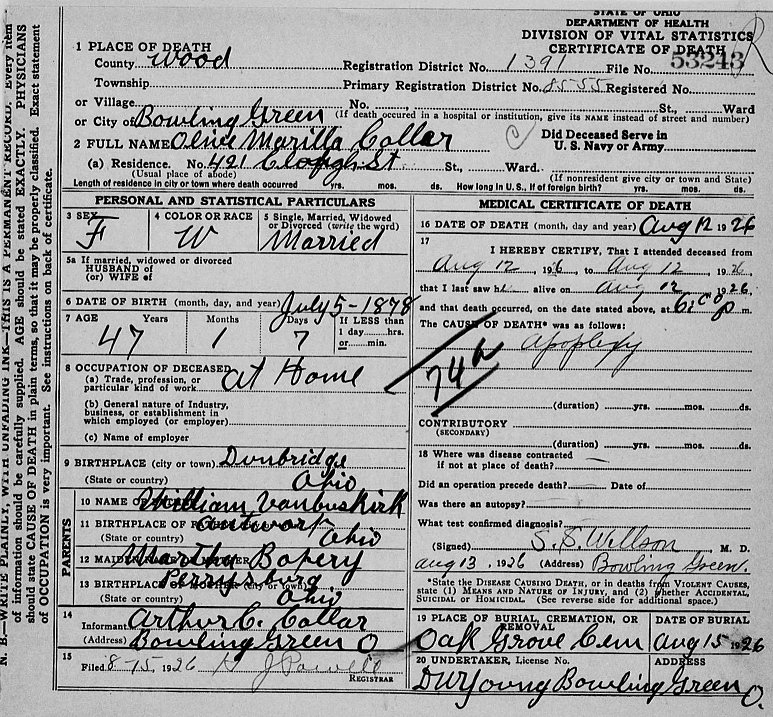 STATE OF OHIO
DEPARTMENT OF HEALTH
DIVISION OF VITAL STATISTICS
CERTIFICATE OF DEATH
1 PLACE OF DEATH
County Wood Registration District No. 1391 File No. 53243
Township Primary Registration District No. 8555 Registered No.
or Village No. , St., Ward
or City of Bowling Green (If death occured in a hospital or institution, give its NAME instead of street and number)
2 FULL NAME Olive Marilla Collar Did Deceased Serve in
U. S. Navy or Army
(a) Residence. No. 421 Clough St St., Ward.
(Usual place of abode) (If nonresident give city or town and State)
Length of residence in city or town where death occurred yrs. mos. ds. How long in U. S., if of foreign birth? yrs. mos. ds.
PERSONAL AND STATISTICAL PARTICULARS
3 SEX F
4 COLOR OR RACE W
5 Single, Married, Widowed
or Divorced (write the word)
Married
5a If married, widowed or divorced
HUSBAND of
(or) WIFE of
6 DATE OF BIRTH (month, day, and year) July 5-1878
7 AGE Years Months Days If LESS than
47 1 7 1 day hrs.
or min.
8 OCCUPATION OF DECEASED
(a) Trade, profession, or
particular kind of work At Home
(b) General nature of Industry,
business, or establishment in
which employed (or employer)
(c) Name of employer
9 BIRTHPLACE (city or town) Dunbridge
(State or country) Ohio
PARENTS
10 NAME OF William Vanbuskirk
11 BIRTHPLACE OF
(State or country) Ohio
12 MAIDEN Martha
13 BIRTHPLACE OF Perrysburg (city or town)
(State or country) Ohio
14
Informant Arthur C. Collar
(Address) Bowling Green O
15
Filed 8-15, 1926 J Powell
REGISTRAR
MEDICAL CERTIFICATE OF DEATH
16 DATE OF DEATH (month, day and year) Aug 12 1926
17
I HEREBY CERTIFY, That I attended deceased from
Aug 12, 1926, to Aug 12, 1926,
that I last saw h alive on Aug 12, 1926,
and that death occurred, on the date stated above, at 6:00 p m.
The CAUSE OF DEATH* was as follows:
Apoplexy
74a
(duration) yrs. mos. ds.
CONTRIBUTORY
(SECONDARY)
(duration) yrs. mos. ds.
18 Where was disease contracted
if not at place of death?
Did an operation precede death? Date of
Was there an autopsy?
What test confirmed diagnosis?
(Signed) S. S. Willson M. D.
Aug 13, 1926 (Address) Bowling Green.
*State the DISEASE CAUSING DEATH, or in deaths from VIOLENT CAUSES,
state (1) MEANS AND NATURE OF INJURY, and (2) whether ACCIDENTAL,
SUICIDAL or HOMICIDAL. (See reverse side for additional space.)
19 PLACE OF BURIAL, CREMATION, OR
REMOVAL
Oak Grove Cem
DATE OF BURIAL
Aug 15 1926
20 UNDERTAKER, License No. ADDRESS
DW Young Bowling Green O.
N. B.—WRITE PLAINLY, WITH UNFADING INK—THIS IS A PERMANENT RECORD. Every item
of information should be carefully supplied. AGE should be stated EXACTLY. PHYSICIANS
should state CAUSE OF DEATH in plain terms, so that it may be properly classified. Exact statement
of OCCUPATION is very important. See instructions on back of certificate.